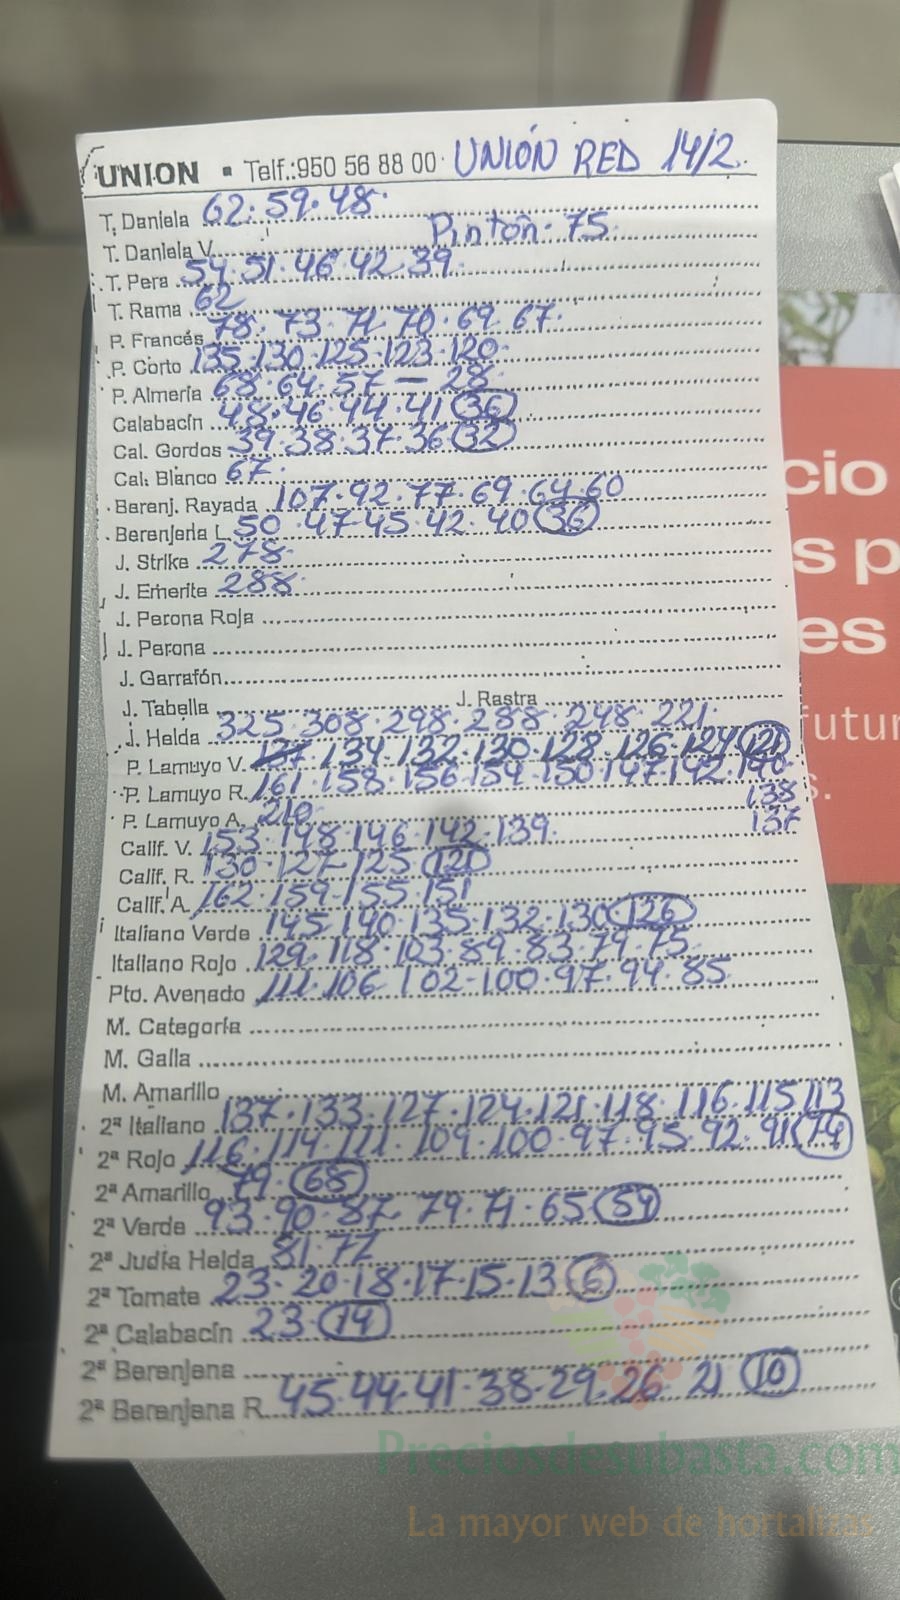 UNION ▪ Telf.:950 56 88 00 · UNIÓN RED 14/2.
T. Daniela 62·59·48·
T. Daniela V. Pintón· 75
T. Pera 54·51·46·42·39
T. Rama 62
P. Francés 78·73·71·70·69·67·
P. Corto 135·130·125·123·120·
P. Almería 68·64·57 — 28
Calabacín 48·46·44·41 36
Cal. Gordos 39·38·37·36 32
Cal. Blanco 67·
Barenj. Rayada 107·92·77·69·64·60
Berenjena L. 50·47·45·42·40 36
J. Strike 278
J. Emerite 288
J. Perona Roja
J. Perona
J. Garrafón
J. Tabella J. Rastra
J. Helda 325·308·298·288·248·221·
P. Lamuyo V. 137·134·132·130·128·126·124 121
P. Lamuyo R. 161·158·156·154·150·147·142·140
138
P. Lamuyo A. 210
137
Calif. V. 153·148·146·142·139·
Calif. R. 130·127·125 121
Calif. A. 162·159·155·151
Italiano Verde 145·140·135·132·130 126
Italiano Rojo 129·118·103·89·83·79·75
Pto. Avenado 111·106·102·100·97·94·85
M. Categoría
M. Galla
M. Amarillo
2ª Italiano 137·133·127·124·121·118·116·115 113
2ª Rojo 116·114·111·109·100·97·95·92·91 74
2ª Amarillo 79· 68
2ª Verde 93·90·87·79·71·65 59
2ª Judía Helda 81·77
2ª Tomate 23·20·18·17·15·13 6
2ª Calabacín 23· 14
2ª Berenjena
2ª Berenjena R. 45·44·41·38·29·26 21 10
cio
s p
es
futur
s.
Preciosdesubasta.com
La mayor web de hortalizas